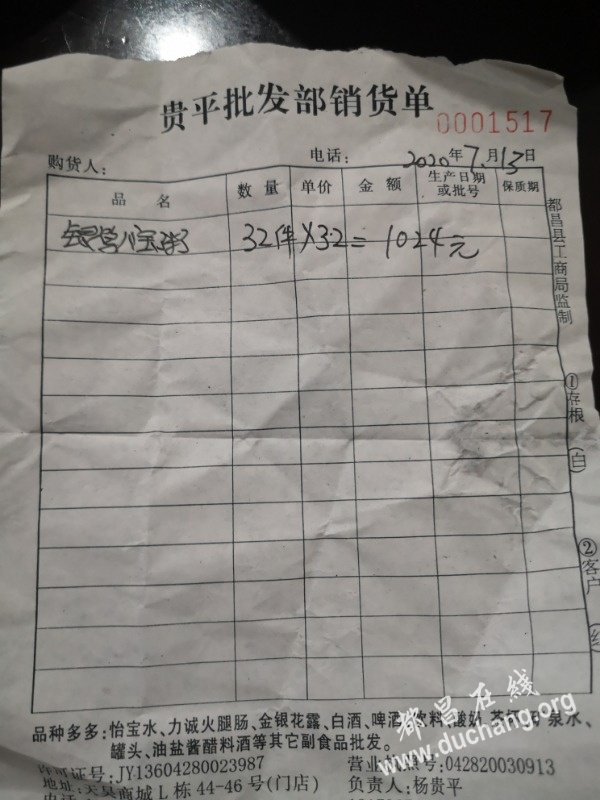 贵平批发部销货单
0001517
购货人: 电话: 2020年7月13日
品名 数量 单价 金额 生产日期或批号 保质期
八宝粥 32件 × 32 = 1024元
都昌县工商局监制
①存根(白)
②客户(红)
品种多多:怡宝水、力诚火腿肠、金银花露、白酒、啤酒、饮料、酸奶、泉水、
罐头、油盐酱醋料酒等其它副食品批发。
许可证号:JY13604280023987 营业执照号:042820030913
地址:天昊商城L栋44-46号(门店) 负责人:杨贵平
都昌在线
www.duchang.org